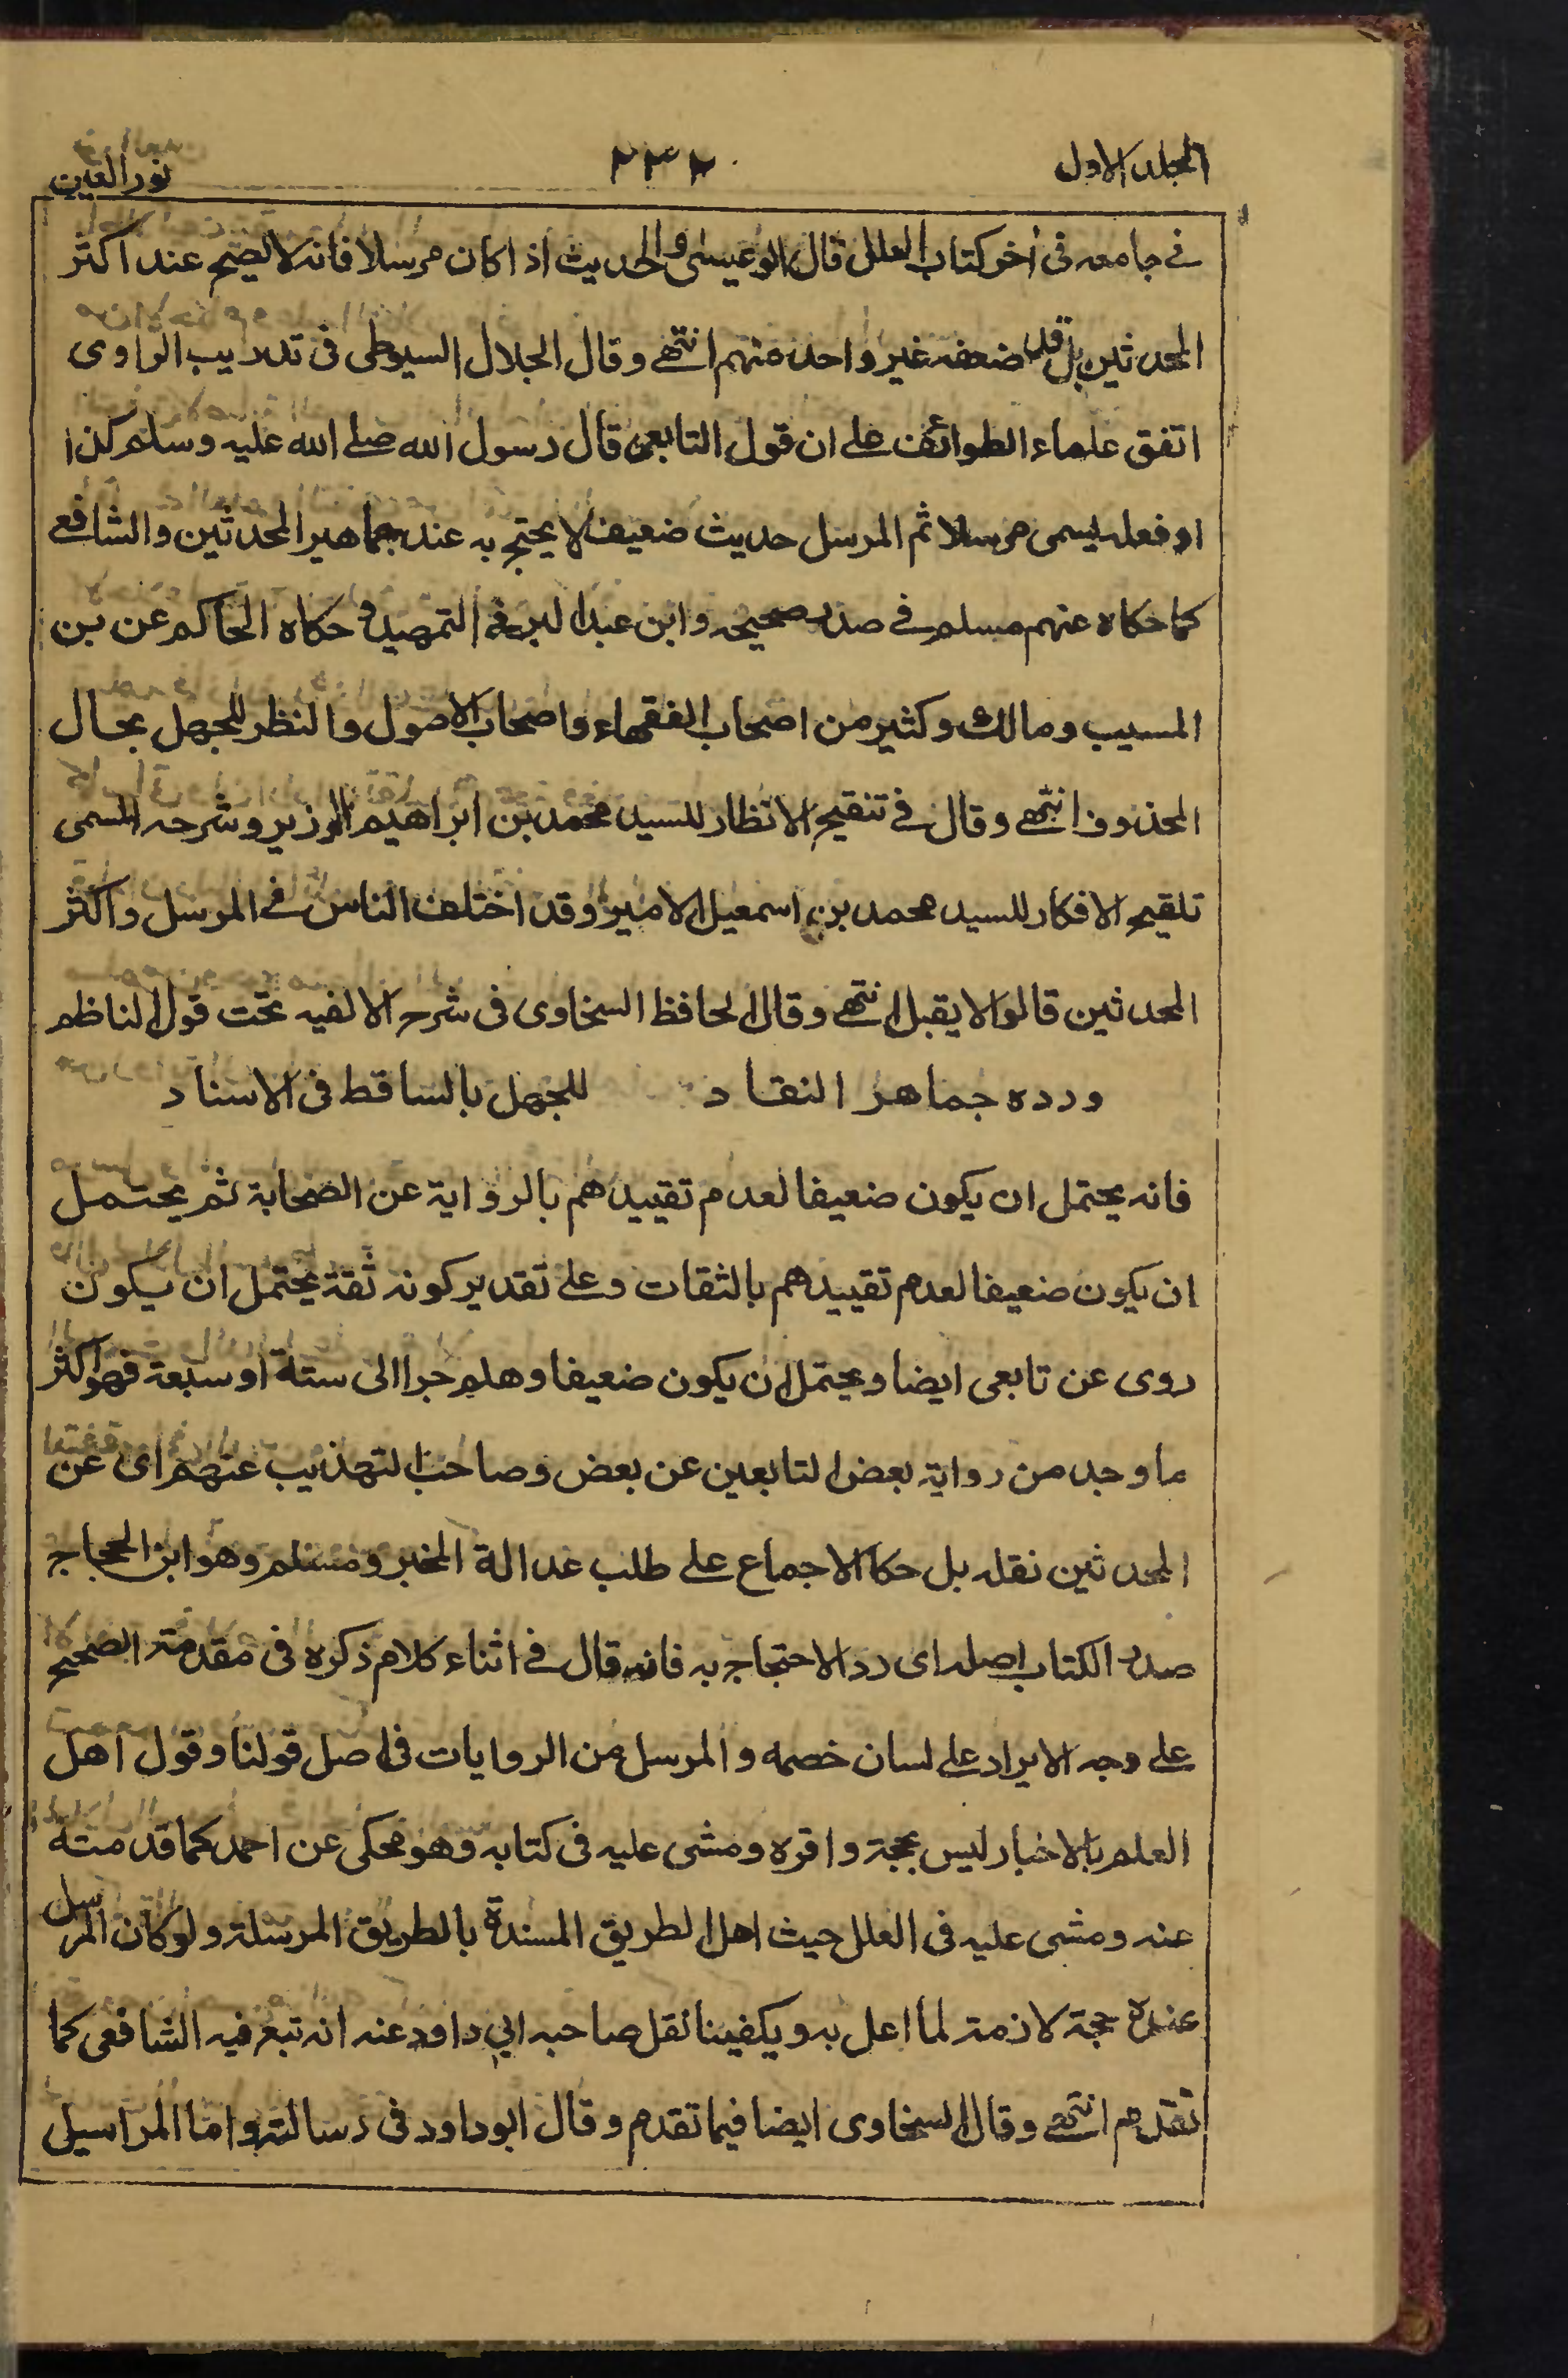 المجلد الاول ٢٣٢ نور العين
في جامعه فى اخر كتاب العلل قال ابو عيسى والحديث اذا كان مرسلا فانه لا يصح عند اكثر
المحدثين بل قد ضعفه غير واحد منهم انتهى وقال الجلال السيوطى فى تدريب الراوى
اتفق علماء الطوائف على ان قول التابعى قال رسول الله صلے الله عليه وسلم كذا
او فعله يسمى مرسلا ثم المرسل حديث ضعيف لا يحتج به عند جماهير المحدثين والشافعے
كما حكاه عنهم مسلم فے صدر صحيحه وابن عبد البر فے التمهيد و حكاه الحاكم عن بن
المسيب ومالك وكثير من اصحاب الفقهاء واصحاب الاصول والنظر للجهل بحال
المحذوف انتهے وقال فے تنقيح الانظار للسيد محمد بن ابراهيم الوزير وشرحه المسمى
تلقيح الافكار للسيد محمد بن اسمعيل الامير وقد اختلف الناس فے المرسل واكثر
المحدثين قالوا لا يقبل انتهے وقال الحافظ السخاوى فى شرح الالفيه تحت قول الناظم
ورده جماهر النقاد للجهل بالساقط فى الاسناد
فانه يحتمل ان يكون ضعيفا لعدم تقييدهم بالرواية عن الصحابة ثم يحتمل
ان يكون ضعيفا لعدم تقييدهم بالثقات وعلى تقدير كونه ثقة يحتمل ان يكون
روى عن تابعى ايضا ويحتمل ان يكون ضعيفا وهلم جرا الى ستة او سبعة فهو اكثر
ما وجد من رواية بعض التابعين عن بعض وصاحب التهذيب عنهم اى عن
المحدثين نقله بل حكا الاجماع على طلب عدالة المخبر ومسلم وهو ابن الحجاج
صدر الكتاب اصله اى رد الاحتجاج به فانه قال فے اثناء كلام ذكره فى مقدمة الصحيح
على وجه الايراد على لسان خصمه والمرسل من الروايات فى اصل قولنا وقول اهل
العلم بالاخبار ليس بحجة واقره ومشى عليه فى كتابه وهو محكى عن احمد كما قدمته
عنه ومشى عليه فى العلل حيث اهل الطريق المسندة بالطريق المرسلة ولو كان المرسل
عنده حجة لازمة لما اعل به ويكفينا نقل صاحبه ابي داود عنه انه تبع فيه الشافعى كما
تقدم انتهے وقال السخاوى ايضا فيما تقدم وقال ابو داود فى رسالته واما المراسيل